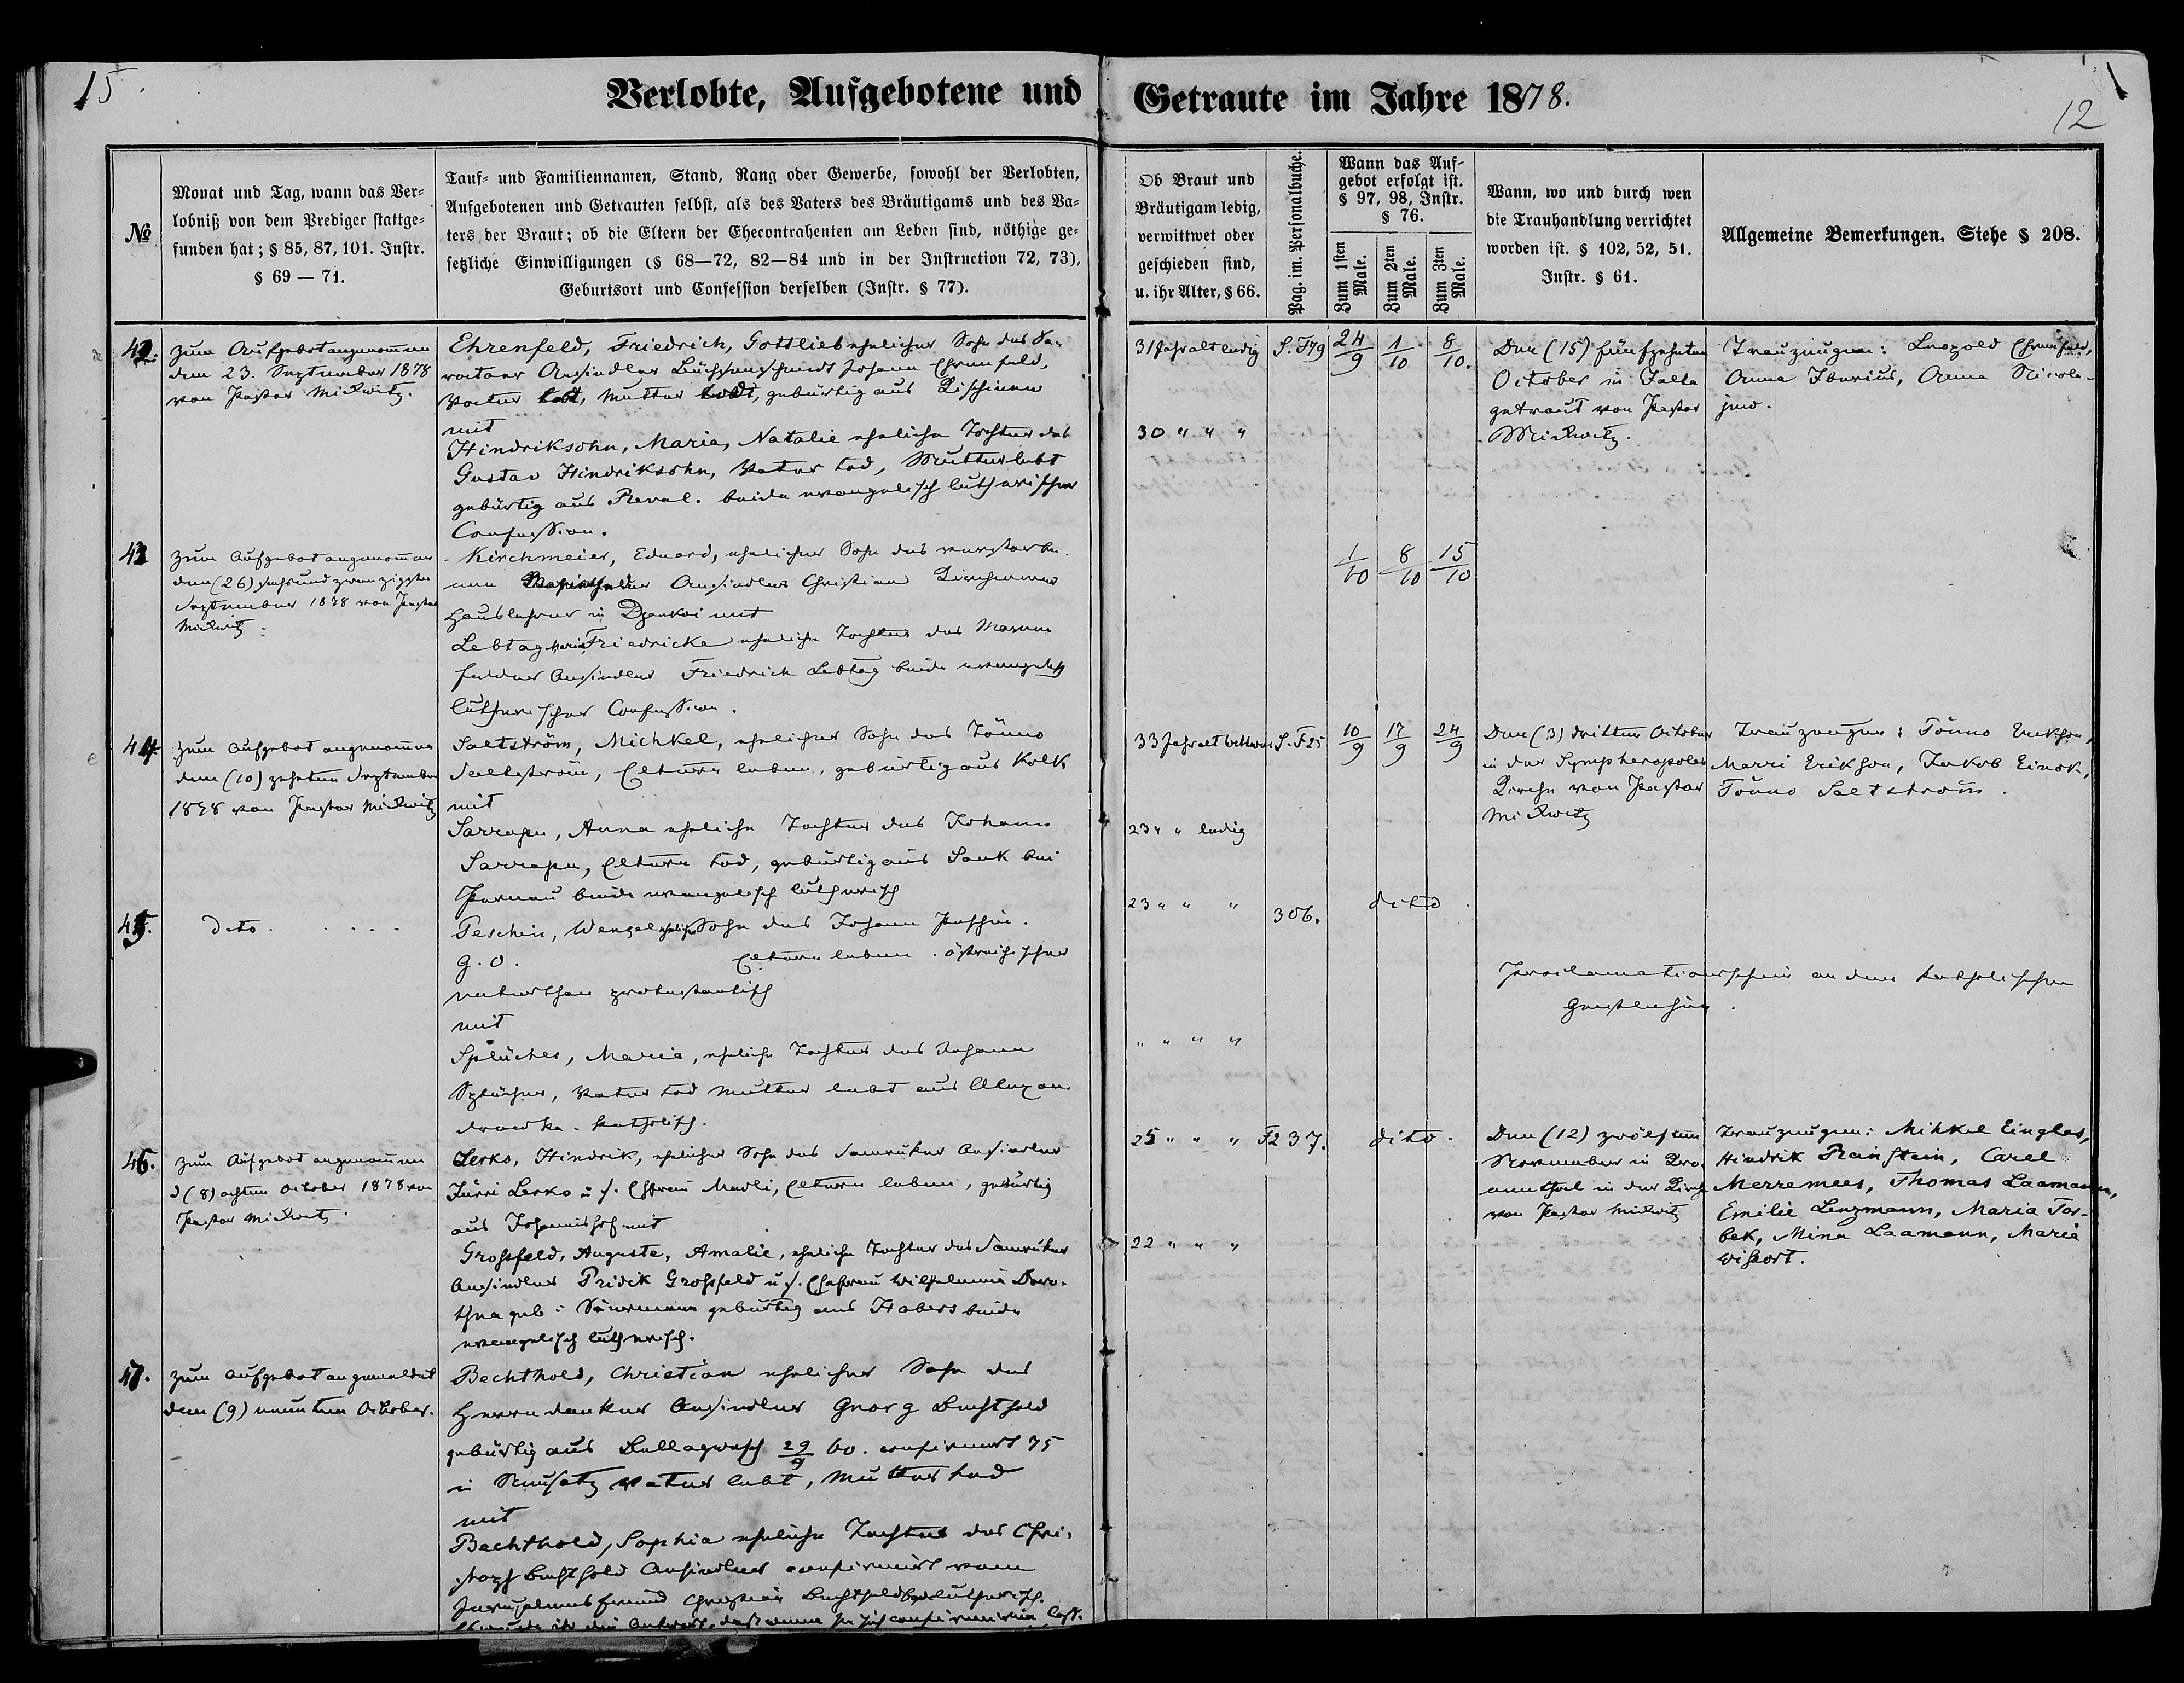 15.
Verlobte, Aufgebotene und Getraute im Jahre 1878.
12
№
Monat und Tag, wann das Ver-
lobniß von dem Prediger stattge-
funden hat; § 85, 87, 101. Instr.
§ 69 — 71.
Tauf- und Familiennamen, Stand, Rang oder Gewerbe, sowohl der Verlobten,
Aufgebotenen und Getrauten selbst, als des Vaters des Bräutigams und des Va-
ters der Braut; ob die Eltern der Ehecontrahenten am Leben sind, nöthige ge-
setzliche Einwilligungen (§ 68—72, 82—84 und in der Instruction 72, 73),
Geburtsort und Confession derselben (Instr. § 77).
Ob Braut und
Bräutigam ledig,
verwittwet oder
geschieden sind,
u. ihr Alter, § 66.
Pag. im. Personalbuche.
Wann das Auf-
gebot erfolgt ist.
§ 97, 98, Instr.
§ 76.
Zum 1sten
Male.
Zum 2ten
Male.
Zum 3ten
Male.
Wann, wo und durch wen
die Trauhandlung verrichtet
worden ist. § 102, 52, 51.
Instr. § 61.
Allgemeine Bemerkungen. Siehe § 208.
42.
zum Aufgebot angenommen
den 23. September 1878
von Pastor Mickwitz.
Ehrenfeld, Friedrich, Gottlieb ehelicher Sohn des
Ansiedler Büchsenschmidt Johann Ehrenfeld,
Vater todt, Mutter todt, gebürtig aus Kischinew
mit
Hindriksohn, Maria, Natalie eheliche Tochter des
Gustav Hindriksohn, Vater tod, Mutter lebt
gebürtig aus Reval. beide evangelisch lutherischer
Confession.
31 Jahr alt ledig
30 " " "
S. F79
24/9 1/10 8/10.
Den (15) fünfzehnten
October in Jalta
getraut von Pastor
Mickwitz.
Trauzeugen: Leopold Ehrenfeld,
Anna Iberius, Anna Nicola-
jew.
43
zum Aufgebot angenommen
den (26) sechsundzwanzigsten
September 1878 von Pastor
Mickwitz.
Kirchmeier, Eduard, ehelicher Sohn des verstorbe-
nen Ansiedlers Christian Kirchmeier
Hauslehrer in Djankoi mit
Lebtag Maria Friedricke eheliche Tochter des Marien
felder Ansiedler Friedrich Lebtag beide evangelisch
lutherischer Confession.
1/10 8/10 15/10
44
zum Aufgebot angenommen
den (10) zehnten September
1878 von Pastor Mickwitz
Saltström, Michkel, ehelicher Sohn des Tönno
Saltström, Eltern leben, gebürtig aus Kolk
mit
Sarrapu, Anna eheliche Tochter des Johann
Sarrapu, Eltern tod, gebürtig aus Sauk bei
Pernau beide evangelisch lutherisch
33 Jahr alt Wittwer
23 " " ledig
S. F25
10/9 17/9 24/9
Den (3) dritten October
in der Sympheropoler
Kirche von Pastor
Mickwitz
Trauzeugen: Tönno Erikson,
Marri Erikson, Jakob Einok,
Tönno Saltström.
45.
dito. . . . .
Peschin, Wenzel ehelicher Sohn des Johann Peschin.
g. O. Eltern leben. östreichischer
Unterthan protestantisch
mit
Splücher, Maria, eheliche Tochter des Johann
Splücher, Vater tod Mutter lebt aus Alexan-
drowka. katholisch.
23 " " "
" " " "
306.
dito.
Proclamationsschein an den katholischen
Geistlichen.
46.
zum Aufgebot angenommen
d (8) achten October 1878 von
Pastor Mickwitz.
Lesko, Hindrik, ehelicher Sohn des Samruker Ansiedler
Jürri Lesko u s. Ehefrau Madli, Eltern leben, gebürtig
aus Johannishof mit
Grossfeld, Auguste, Amalie, eheliche Tochter des Samruker
Ansiedler Pridik Grossfeld u s. Ehefrau Wilhelmina Doro-
thea geb: gebürtig aus Habers beide
evangelisch lutherisch.
25 " " "
22 " " "
F237.
dito.
Den (12) zwölften
November in Kro-
nenthal in der Kirche
von Pastor Mickwitz
Trauzeugen: Mihkel Einglas,
Hindrik Ranstein, Carel
Merremees, Thomas Laamann,
Emilie Lenzmann, Maria Tor-
bek, Mina Laamann, Maria
Wiskort.
47.
zum Aufgebot angemeldet
den (9) neunten October.
Bechthold, Christian ehelicher Sohn des
Ansiedler Georg Bechthold
gebürtig aus 29/9 60. confirmirt 75
in Neusatz Vater lebt, Mutter tod
mit
Bechthold, Sophia eheliche Tochter des Chri-
stoph Bechthold Ansiedler confirmirt vom
Jerusalemsfreund Christian Bechthold